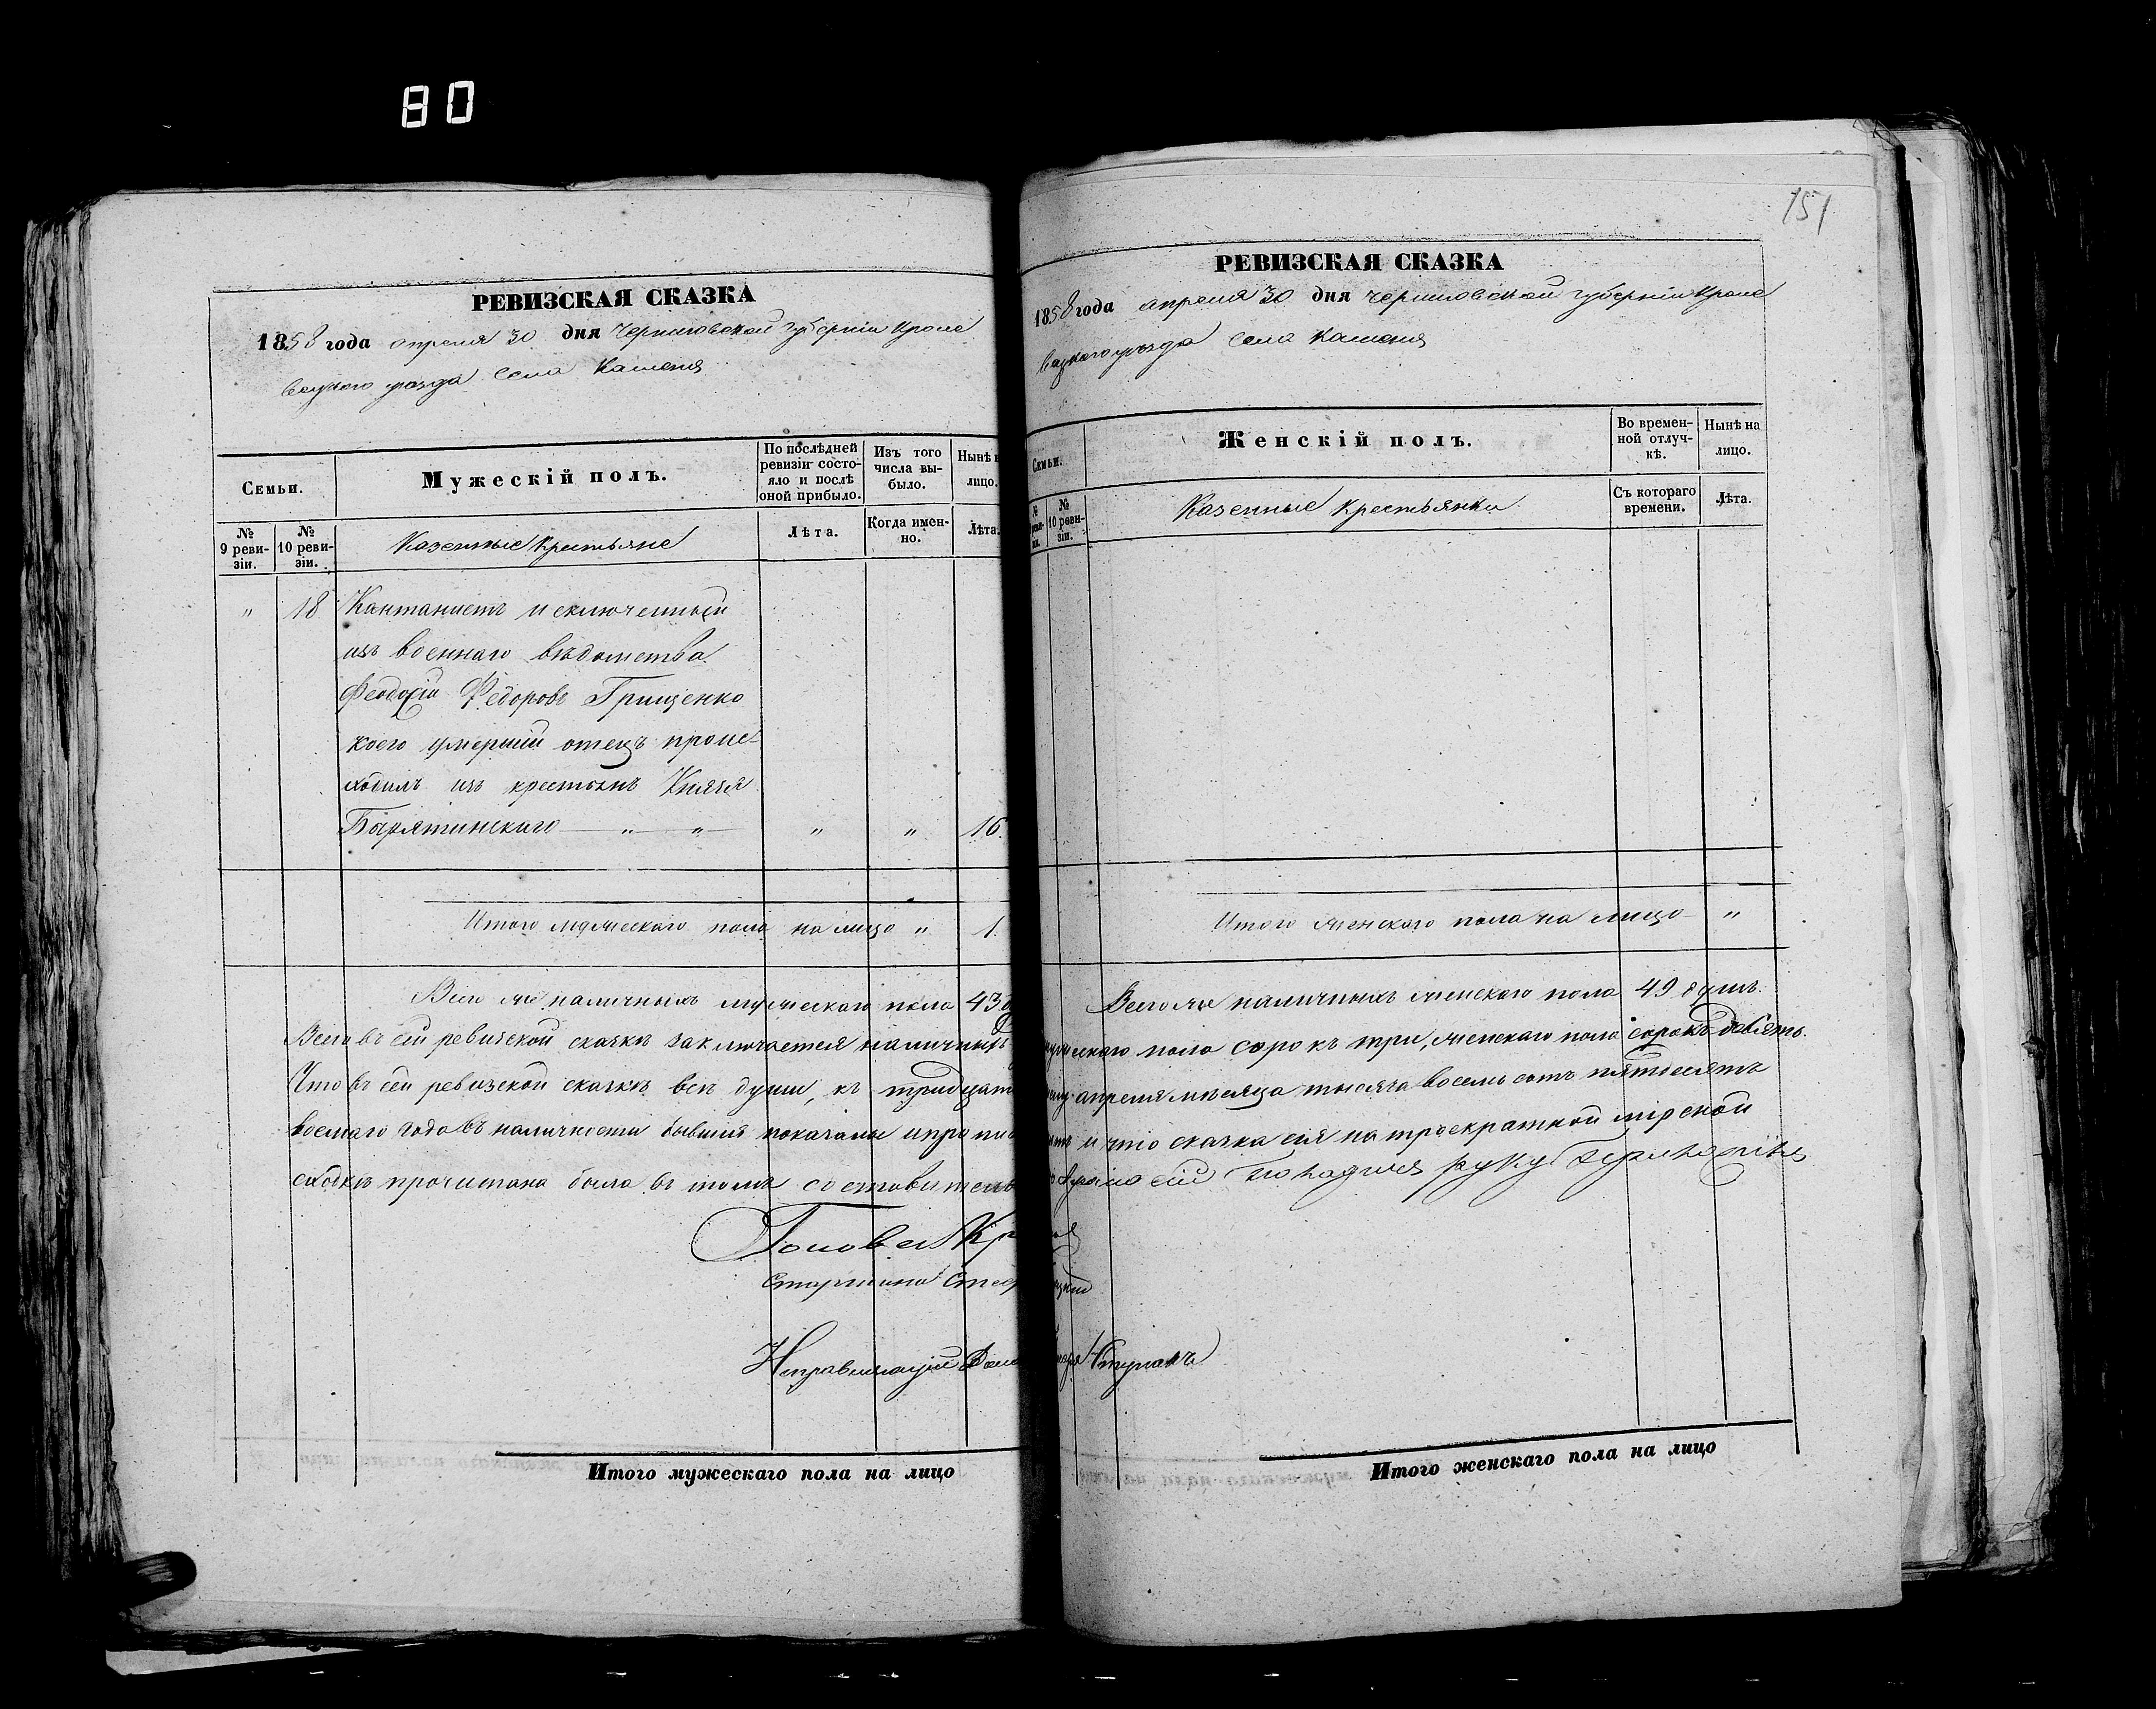 80
РЕВИЗСКАЯ СКАЗКА
1858 года апреля 30 дня Черниговской губерніи Кроле
вецкого уезда Села Каменя
Семьи.
Мужескій полъ.
По послѣдней ревизіи состояло и послѣ оной прибыло.
Изъ того числа выбыло.
Нынѣ
лицо.
№ 9 ревизіи.
№ 10 ревизіи.
Казенные Крестьяне
Лѣта.
Когда именно.
Лѣта.
" 18 Кантанистъ исключенный
изъ военнаго вѣдомства
Феодосій Федоровъ Грищенко
коего умершій отецъ проис-
ходилъ изъ крестьянъ Князя
Барятинскаго — " — " — " " 16.
Итого мужескаго пола на лицо " 1.
Всего же наличныхъ мужескаго пола 43
Всего въ сей ревизской сказкѣ заключается наличныхъ
Что въ сей ревизской сказкѣ всѣ души, къ тридцат
восмаго года въ наличности бывшія показаны и
сходкѣ прочитана была въ томъ составители
Голова
Старшина
Исправляющій
Итого мужескаго пола на лицо
151
РЕВИЗСКАЯ СКАЗКА
1858 года апреля 30 дня Черниговской губерніи Кроле
вецкого уезда Села Каменя
Семьи.
Женскій полъ.
Во временной отлучкѣ.
Нынѣ на лицо.
№
№ 10 ревизіи.
Казенные крестьянки
Съ котораго времени.
Лѣта.
Итого женскаго пола на лицо "
Всего же наличныхъ женскаго пола 49 душъ.
ескаго пола сорокъ три, женскаго пола сорокъ девять.
апреля мѣсяца тысяча восемь сотъ пятдесятъ
и что сказка сія на троекратной мірской
сій руку
Итого женскаго пола на лицо